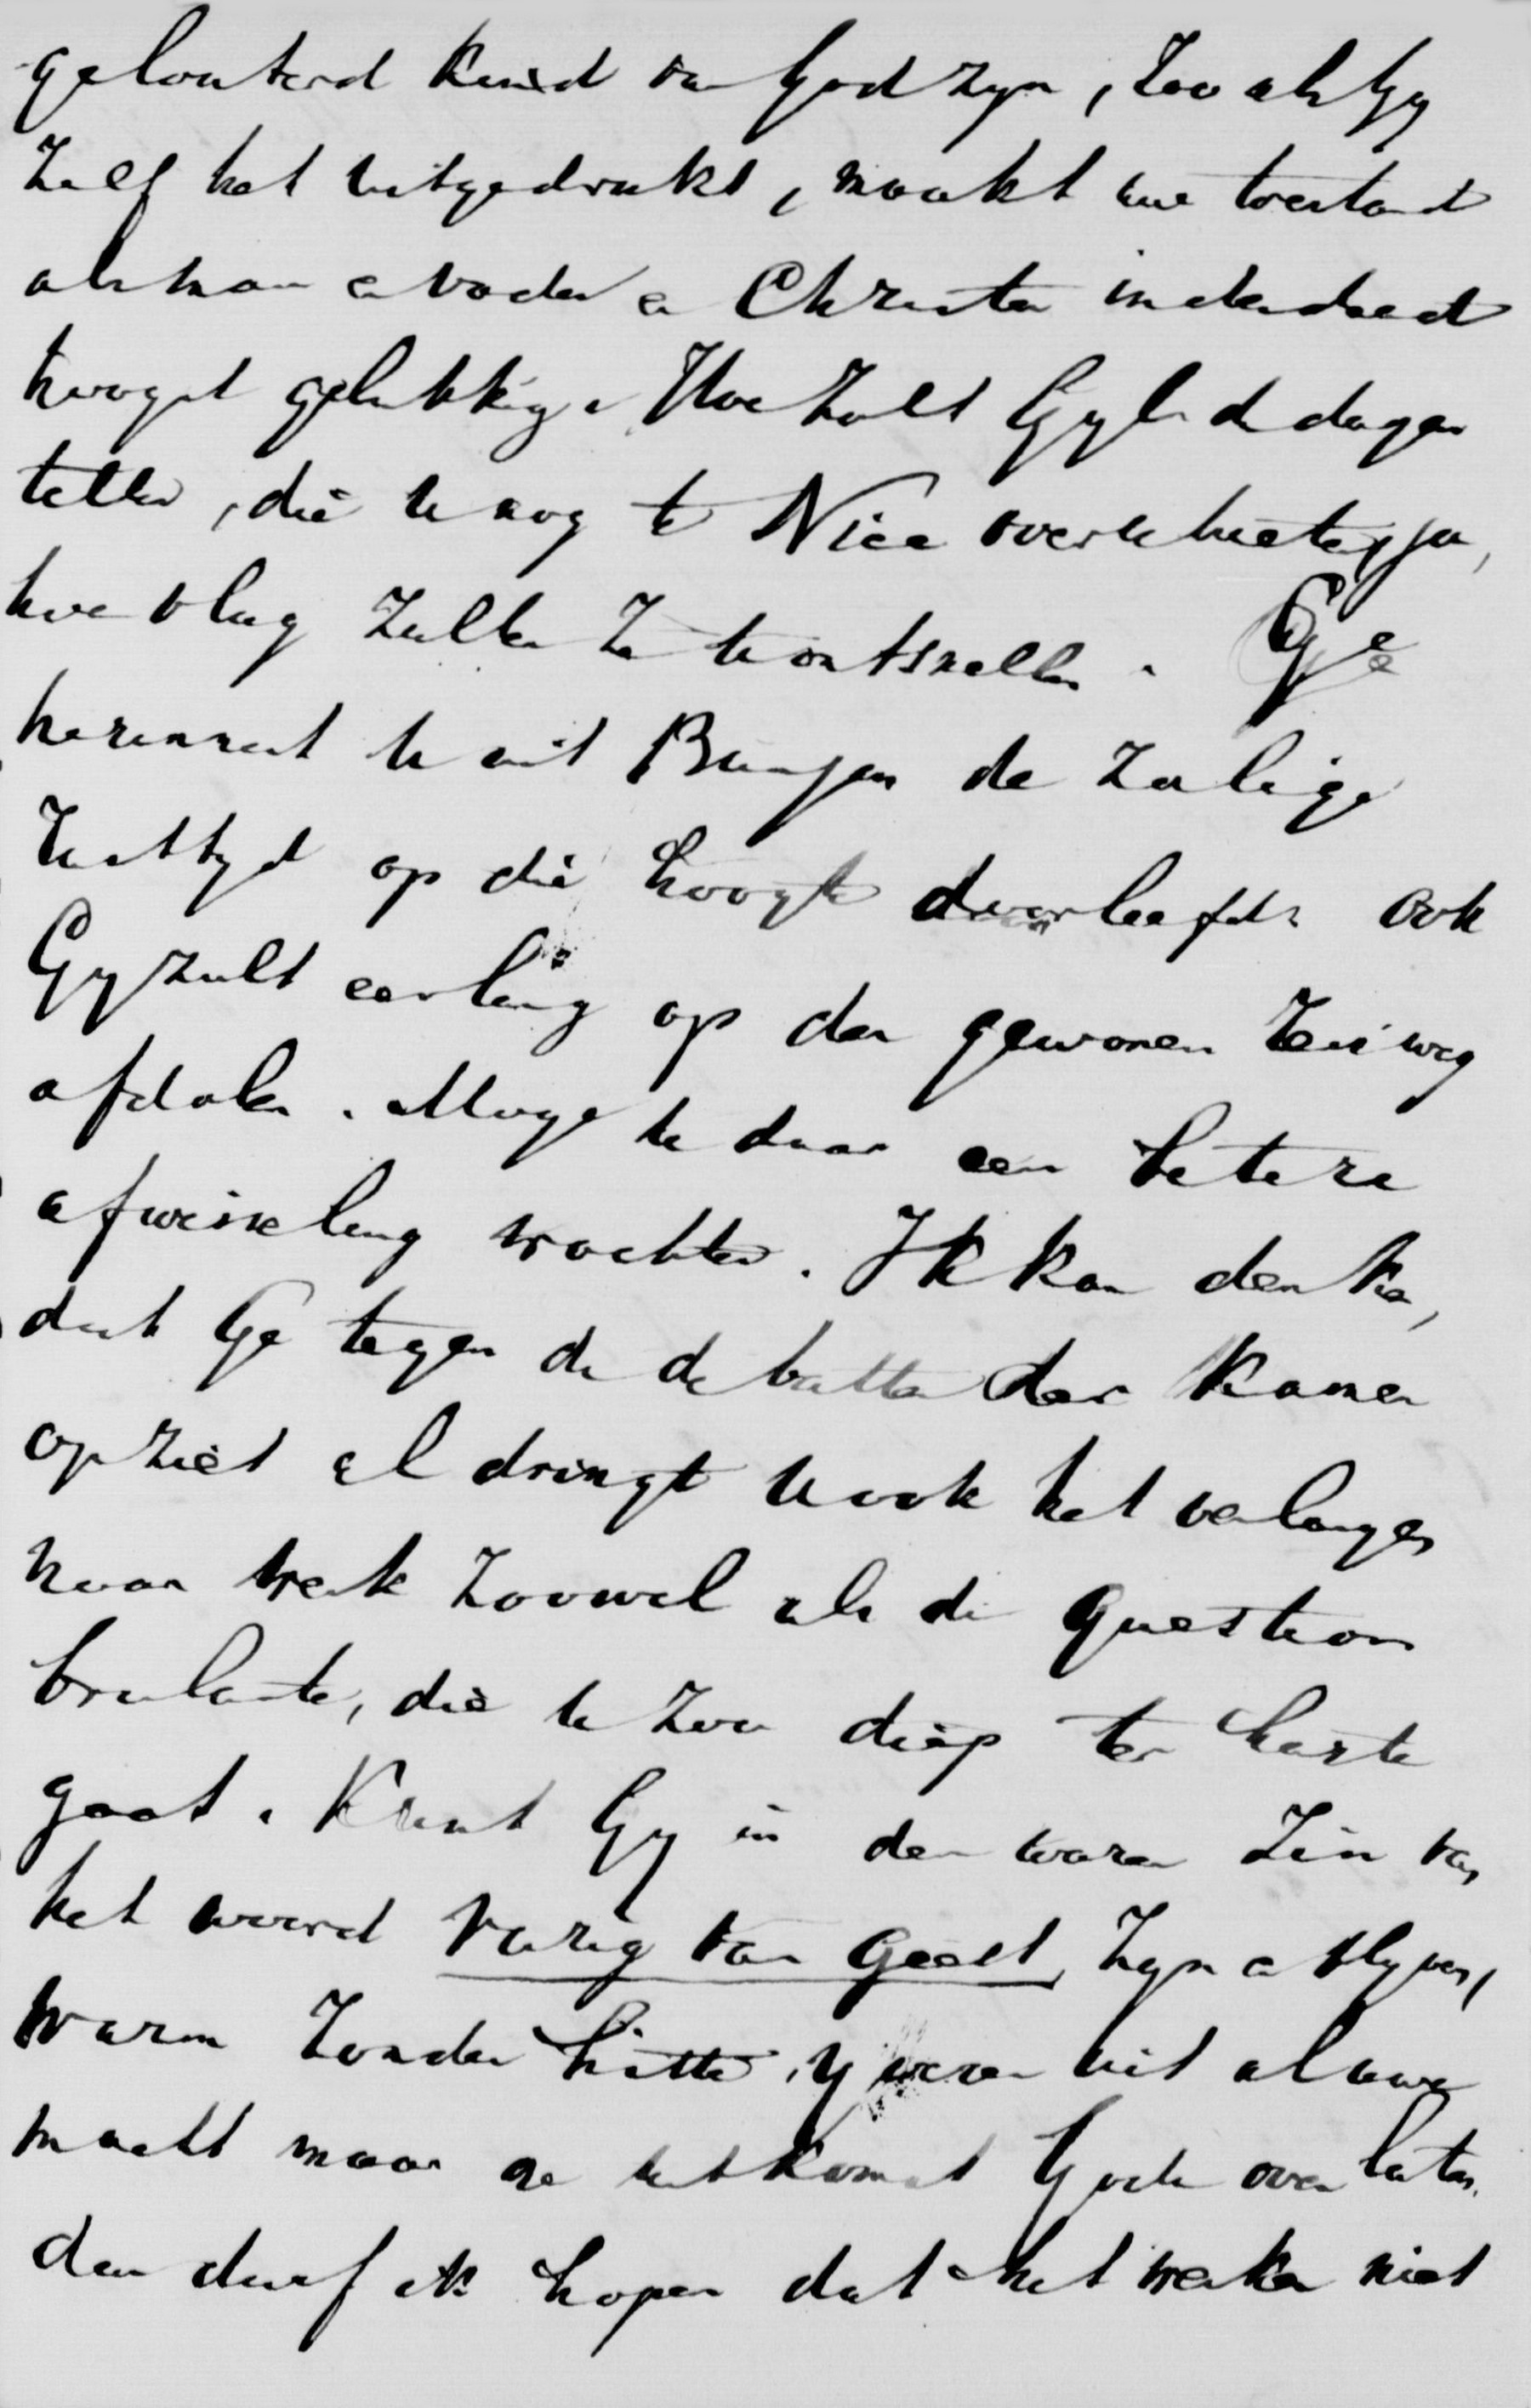 gelouterd kind van God zyn, zoo als Gy
zelf het uitgedrukt, maakt uwe toestand
als man en vader en Christen inderdaad
hoogst gelukkig. Hoe zult Gyl. de dagen
tellen, die u nog te Nice overschieten, ja,
hoe vlug zullen ze u ontsnellen. Ge
herinnert u uit Bunjan de zalige
rusttyd op die hoogte doorleefd. Ook
Gy zult eerlang op den gewonen reisweg
afdalen. Moge u daar een betere
afwisseling wachten. Ik kan denken,
dat Ge tegen de debatten der Kamer
opziet al dringt u ook het verlangen
naar werk zoowel als de question
brulante, die u zoo diep ter harte
gaat. Kunt Gy in den waren zin van
het woord vurig van geest zyn en blyven,
warm zonder hitte, yveren uit al uwe
macht maar de uitkomst Gode overlaten,
dan durf ik hopen dat het werken niet